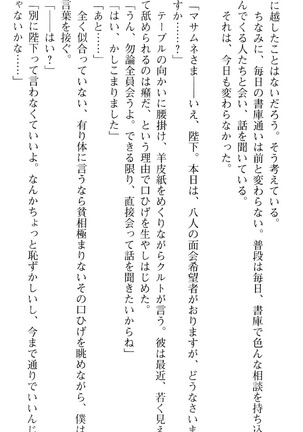 に越したことはないだろう。そう考えている。
ちなみに、毎日の書庫通いは前と変わらない。普段は毎日、書庫で色んな相談を持ち込
んでくる人たちと会い、話を聞いている。
それは、今日も変わらなかった。
「マサムネさま――いえ、陛下。本日は、八人の面会希望者がおりますが、どうなさいま
すか……？」
テーブルの向かいに腰掛け、羊皮紙をめくりながらクルトが言う。彼は最近、若く見え
て舐められるのは癪だ、という理由で口ひげを生やしはじめた。
「うん、勿論全員会うよ。できる限り、直接会って話を聞きたいからね」
「はい、かしこまりました」
「あと……」
全く似合っていない、有り体に言うなら貧相極まりないその口ひげを眺めながら、僕は
言葉を接ぐ。
「――はい？」
「別に陛下って言わなくていいよ。なんかちょっと恥ずかしいし、今まで通りでいいんじ
ゃないかな……」